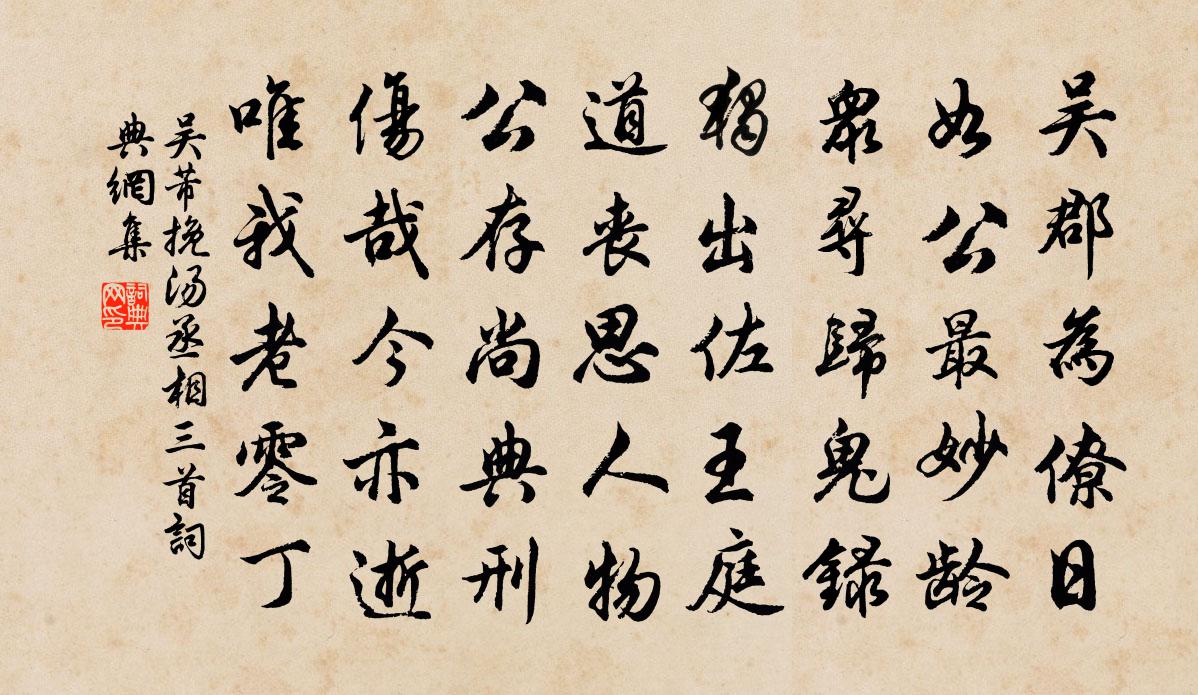 吴郡為僚日
如公最妙龄
眾尋歸鬼録
獨出佐王庭
道丧思人物
公存尚典刑
傷哉今亦逝
唯我老零丁
吴芾挽汤丞相三首詞
典網集
詞典网印